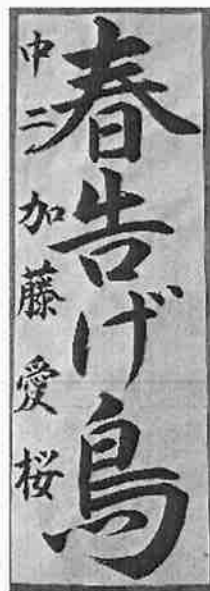 春告げ鳥
中二 加藤愛桜